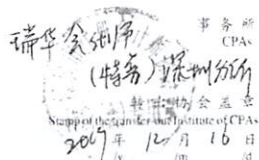 瑞华会计师
事务所
CPAs
(特普)深圳分所
转出协会盖章
Stamp of the transfer-out Institute of CPAs
年 12月16日
y m d